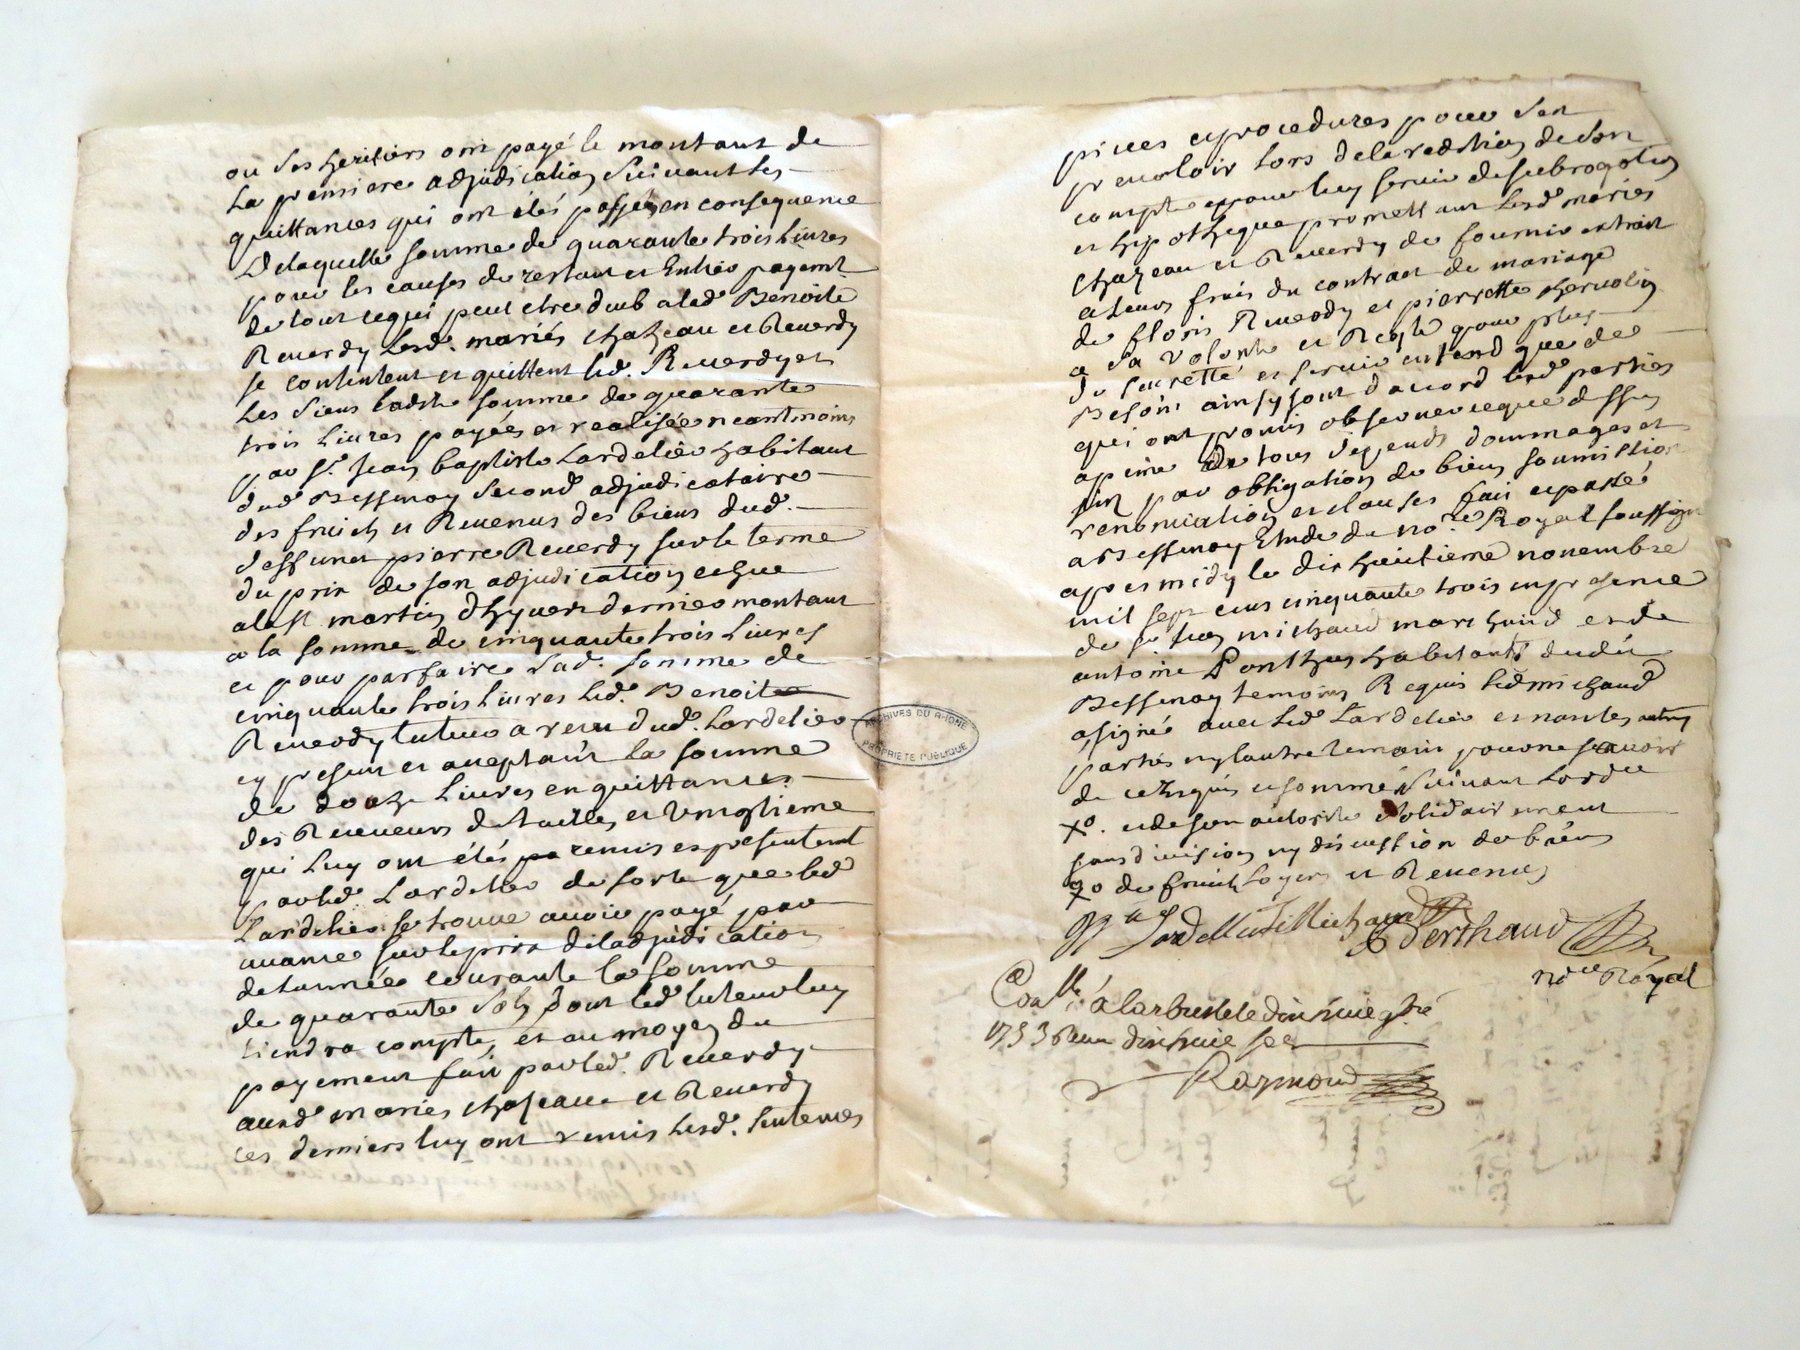 ou ses heritiers ont payé le montant de
la premiere adjudication suivant les
quittances qui ont étés passées en consequence
de laquelle somme de quarante trois livres
pour les causes du restant et entier payemt
de tout ce qui peut etre dueb a lad. Benoite
Reverdy lesd. mariés chazeau et Reverdy
se contentent et quittent led. Reverdy et
les siens ladite somme de quarante
trois livres payées et realisée neantmoins
par sr. jean baptiste Lardelier habitant
dud. Bessenay second adjudicataire
des fruits et Revenus des biens dud.
deffunct pierre Reverdy sur le terme
du prix de son adjudication echue
a la st martin d'hyver dernier montant
a la somme de cinquante trois livres
et pour parfaire lad. somme de
cinquante trois livres led. Benoite
Reverdy tuteur a reçu dud. Lardelier
cy present et acceptant la somme
de douze livres en quittances
des Receveurs de tailles et vingtieme
qui luy ont étés remis es presentemt
par led. Lardelier de sorte que led.
Lardelier se trouve avoir payé par
avance sur le prix de ladjudication
de lannée courante la somme
de quarante sols dont led. tuteur luy
tiendra compte, et au moyen du
payement fait par led. Reverdy
auxd. mariés chazeau et Reverdy
ces derniers luy ont remis lesd. sentences
pieces et procedures pour s'en
prevaloir lors de la reddition de son
compte et pour luy servir de subrogation
et hipotheque promettant lesd. mariés
Chazeau et Reverdy de fournir extrait
a leurs frais du contract de mariage
de floris Reverdy et pierrette
a sa volonté et Reste pour plus
de seureté et servir entend que de
Besoin ainsy sont d'accord lesd. parties
qui ont promis observer ce que dessus
a peine de tous depends dommages et
par obligation de biens soumission
renonciation et clauses fait et passé
a Bessenay Etude du nore. Royal soussigné
apres midy le dix huitieme novembre
mil sept cens cinquante trois en presence
de sr. jean michaud marchand et de
antoine Ponthus habitants dudit
Bessenay temoins Requis led. michaud
a signé avec led. Lardelier et non les autres
parties ny lautre temoin pour ne scavoir
de ce enquis et sommés suivant lordce
Xo. et de son autorité solidairement
sans division ny discussion de biens
qo de fruits loyers et Revenus
Lardellier Michaud Berthaud
nore Royal
Conllé a larbresle le dix huit gbre
1753 Reçu dix huit sols
Raymond
ARCHIVES DU RHONE
PROPRIETE PUBLIQUE